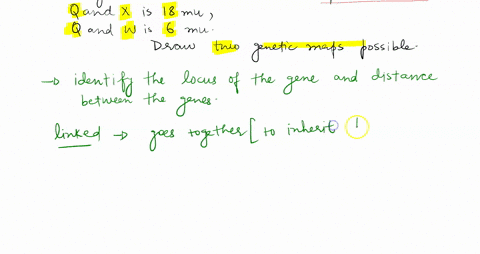 Q and X is 18 mu,
Q and W is 6 mu.
Draw two genetic maps possible.
→ identify the locus of the gene and distance
between the genes.
linked → goes together [ to inherit